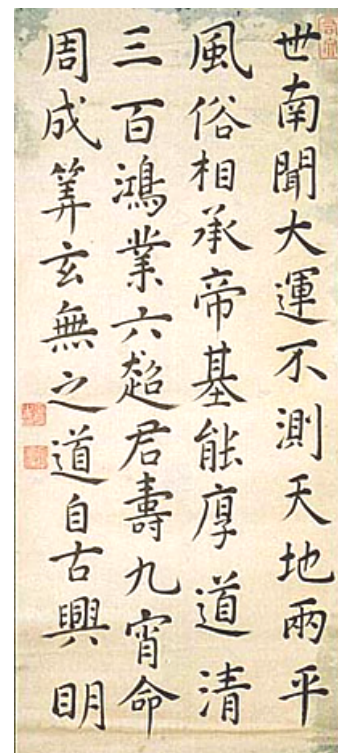 世南聞大運不測天地兩平
風俗相承帝基能厚道清
三百鴻業六超君壽九宵命
周成筭玄無之道自古興明